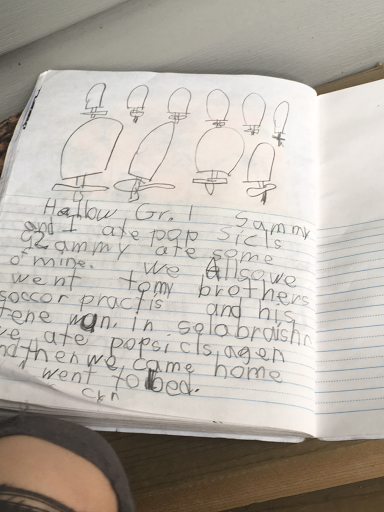 Hallow Gr. 1 Sammy
and I ate pop sicls
ate some
of mine. we Allsowe
went tomy brothers
soccor practis and his
tene wun. in solabraishn
we ate popsicls agen
nd then we came home
I went to bed.